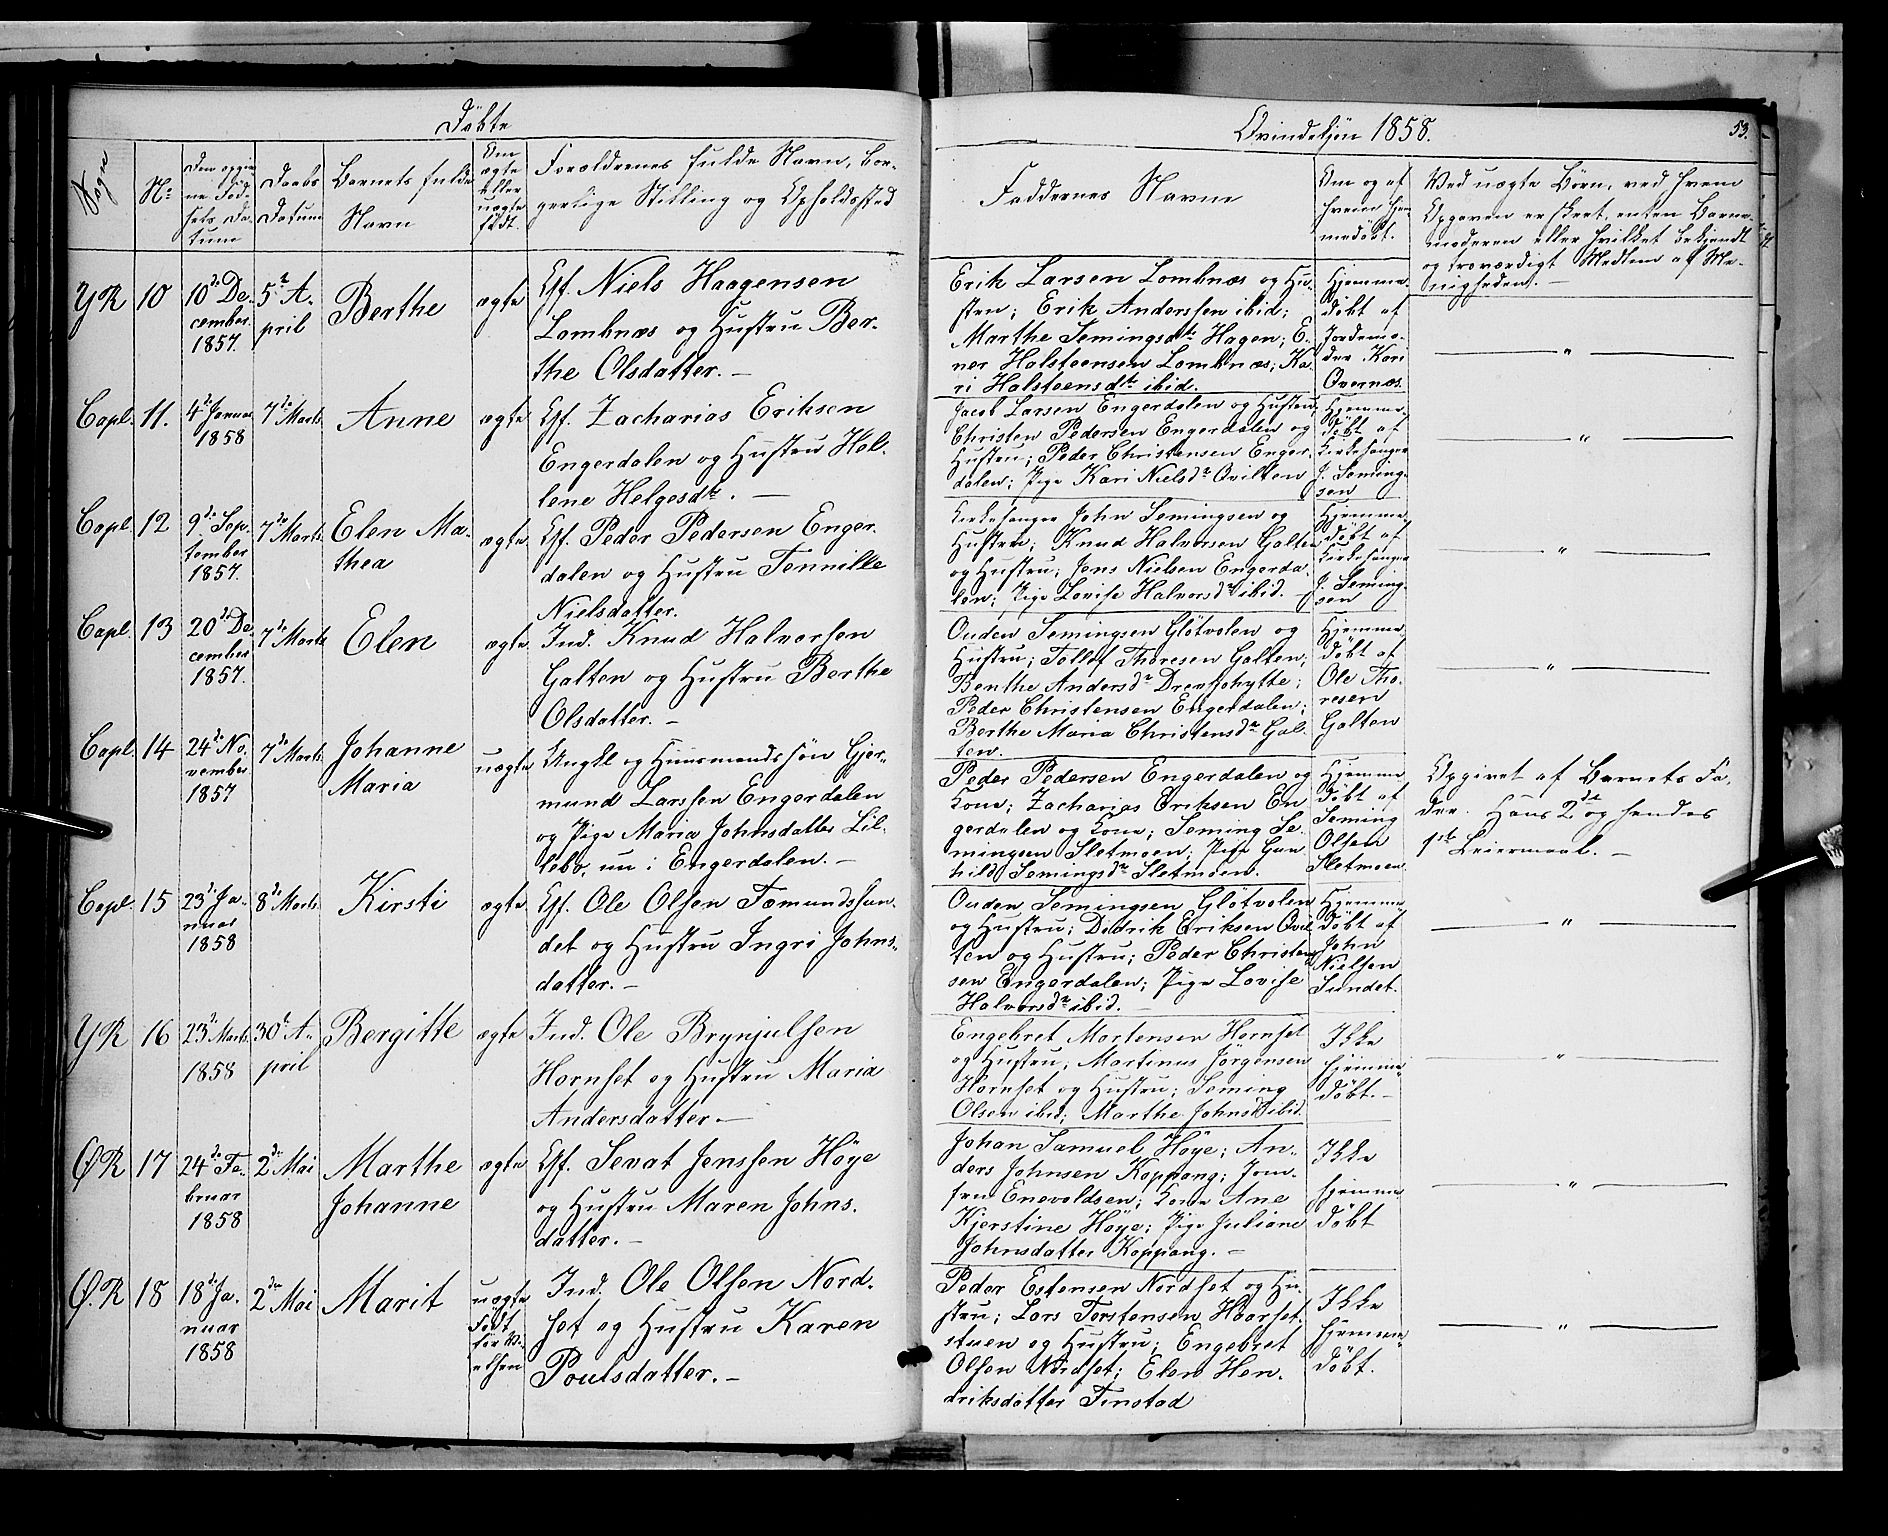 Döbte
Qvindekjön 1858.
53.
Sogne
No
Den opgiv
ne Föd
sels Da
tum
Daabs
Datum
Barnets fulde
Navn
Om
ægte
eller
uægte
födt.
Forældrenes fulde Navn, Bor-
gerlige Stilling og Opholdssted
Faddernes Navne
Om og af
hvem hjem
medöbt.
Ved uægte Börn, ved hvem
Opgaven er skeet, enten Barne
moderen eller hvilket bekjendt
og troværdigt Medlem af Me-
nigheden. —
YR 10
10de De-
cember
1857.
5te A-
pril
Berthe
ægte
Gf. Niels Haagensen
Lombnæs og Hustru Ber-
the Olsdatter. —
Erik Larsen Lombnæs og Hu-
stru; Erik Anderssen ibid;
Marthe Semingsdtr Hagen; E-
ner Halsteensen Lombnæs; Ka-
ri Halsteensdtr ibid.
Hjemme-
döbt af
Jordemo-
der Kari
Overnæs.
— " —
Capl. 11.
4de Januar
1858
7de Marts
Anne
ægte
Gf. Zacharias Eriksen
Engerdalen og Hustru Hal-
lene Helgesdtr. —
Jacob Larsen Engerdalen og Hustru;
Christen Pedersen Engerdalen og
Hustru; Peder Christensen Enger-
dalen; Pige Kari Nielsdr Qvilten
Hjemme-
döbt af
Kirkesanger
J. Seming-
sen
— " —
Capl. 12
9de Sep-
tember
1857.
7de Marts
Elen Ma-
thea
ægte
Gf. Peder Pedersen Enger-
dalen og Hustru Tennille
Nielsdatter.
Kirkesanger John Semingsen og
Hustru; Knud Halvorsen Galten
og Hustru; Jens Nielsen Engerda-
len; Pige Lovise Halvorsdr ibid. —
Hjemme-
döbt af
Kirkesanger
J. Seming-
sen
— " —
Capl. 13
20de De-
cember
1857.
7de Marts
Elen
ægte
Ind. Knud Halvorsen
Galten og Hustru Berthe
Olsdatter. —
Ouden Semingsen Glötvolen og
Hustru; Tollef Thoresen Galten;
Benthe Andersdr Drevsjohytte;
Peder Christensen Engerdalen;
Berthe Maria Christensdr Gal-
ten.
Hjemme-
döbt af
Ole Tho-
resen
Galten
— " —
Capl. 14
24de No-
vember
1857
7de Marts
Johanne
Maria
uægte
Ungkl og Huusmandssön Gjer-
mund Larssen Engerdalen
og Pige Maria Johnsdatter Lil-
lebo, nu i Engerdalen. —
Peder Pedersen Engerdalen og
Kone; Zacharias Eriksen En-
gerdalen og Kone; Seming Se-
mingsen Sletmoen; Pige Gun
hild Semingsdr Sletmoen.
Hjemme-
döbt af
Seming
Olsen
Sletmoen
Opgivet af Barnets Fa-
der. Hans 2det og hendes
1ste Leiermaal. —
Capl. 15
23de Ja-
nuar
1858
8de Marts
Kirsti
ægte
Gf. Ole Olsen Fæmundssun-
det og Hustru Ingri Johns-
datter. —
Ouden Semingsen Glötvolen
og Hustru; Didrik Eriksen Qvil
ten og Hustru; Peder Christen
sen Engerdalen; Pige Lovise
Halvorsdr ibid. —
Hjemme-
döbt af
John
Nielsen
Sundet.
— " —
YR 16
23de Marts
1858
30te A-
pril
Bergitte
ægte
Ind. Ole Brynjulsen
Hornset og Hustru Maria
Andersdatter —
Engebret Mortensen Hornset
og Hustru; Martinus Jörgensen
Hornset og Hustru; Seming
Olsen ibid; Marthe Johnsd ibid.
Ikke
hjemme-
döbt. —
— " —
ØR 17
24de Fe-
bruar
1858
2de Mai
Marthe
Johanne
ægte
Gf. Sevat Jenssen Höye
og Hustru Maren Johns-
datter. —
Johan Samuel Höye; An-
ders Johnsen Koppang; Jom-
fru Enevoldsen; Kone Ane
Kjerstine Höye; Pige Juliane
Johnsdatter Koppang. —
Ikke
hjemme
döbt
— " —
Ø.R 18
18de Ja-
nuar
1858
2den Mai
Marit
uægte
Födt
för Vi-
elsen
Ind. Ole Olsen Nord-
set og Hustru Karen
Poulsdatter. —
Peder Estensen Nordset og Hu-
stru; Lars Torstensen Haarset-
stuen og Hustru; Engebret
Olsen Nordset; Elen Hen-
driksdatter Finstad
Ikke
hjemme-
döbt.
— " —